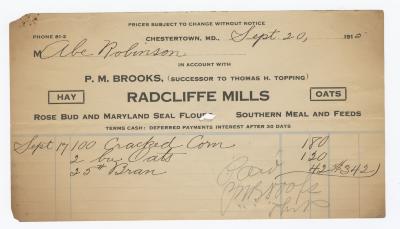 PRICES SUBJECT TO CHANGE WITHOUT NOTICE
PHONE 81-2
CHESTERTOWN, MD., Sept. 20, 1910
M Abe Robinson
IN ACCOUNT WITH
P. M. BROOKS, (SUCCESSOR TO THOMAS H. TOPPING)
HAY RADCLIFFE MILLS OATS
ROSE BUD AND MARYLAND SEAL FLOUR SOUTHERN MEAL AND FEEDS
TERMS CASH: DEFERRED PAYMENTS INTEREST AFTER 30 DAYS
Sept 17 100 Cracked Corn 180
2 bu Oats 120
25# Bran 42 $3 42
Paid
PM Brooks